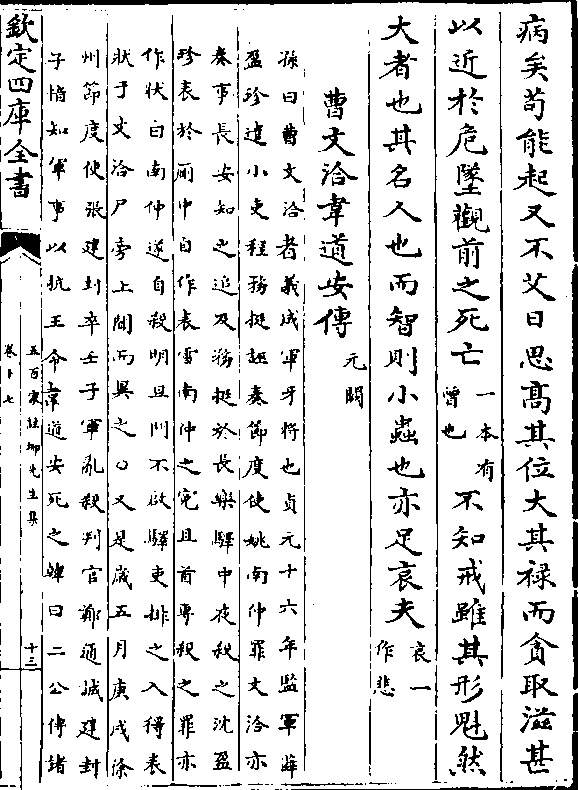 病矣苟能起又不艾日思髙其位大其禄而貪取滋甚
以近於危墜觀前之死亡一本有曾也不知戒雖其形魁然
大者也其名人也而智則小蟲也亦足哀夫哀一作悲
曹文洽韋道安傳元闕
孫曰曹文洽者義成軍牙將也貞元十六年監軍薛
盈珍遣小吏程務挺誣奏節度使姚南仲罪文洽亦
奏事長安知之追及務挺於長樂驛中夜殺之沈盈
珍表於厠中自作表雪南仲之寃且首專殺之罪亦
作狀白南仲遂自殺明旦門不啟驛吏排之入得表
狀于文洽尸旁上聞而異之○又是歳五月庚戌徐
州節度使張建封卒壬子軍亂殺判官鄭通誠建封
子愔知軍事以抗王命韋道安死之韓曰二公傳諸
欽定四庫全書
五百家註柳先生集
卷十七
十三